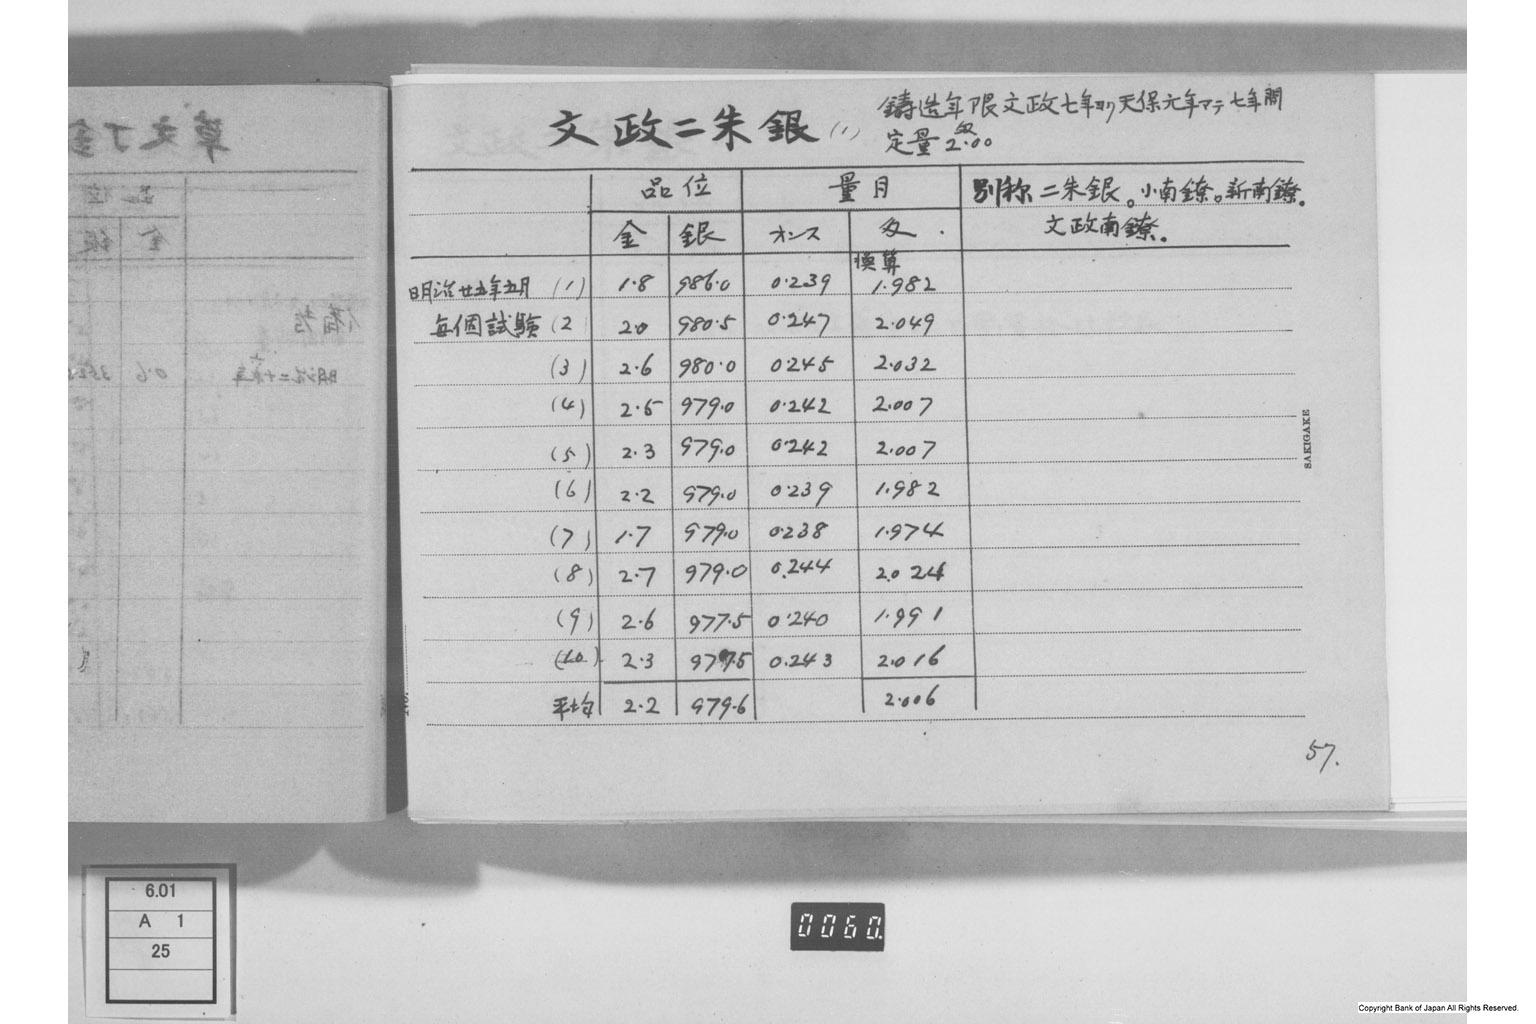 文政二朱銀(1)
鋳造年限文政七年ヨリ天保元年マデ七年間
定量 匁2.00
品位 量目 別称 二朱銀。小南鐐。新南鐐。
金 銀 オンス 匁. 文政南鐐。
換算
明治廿五年五月 (1) 1.8 986.0 0.239 1.982
毎個試験 (2 2.0 980.5 0.247 2.049
(3) 2.6 980.0 0.245 2.032
(4) 2.5 979.0 0.242 2.007
(5) 2.3 979.0 0.242 2.007
(6) 2.2 979.0 0.239 1.982
(7) 1.7 979.0 0.238 1.974
(8) 2.7 979.0 0.244 2.024
(9) 2.6 977.5 0.240 1.991
(10) 2.3 977.5 0.243 2.016
平均 2.2 979.6 2.006
57.
SAKIGAKE
6.01
A 1
25
0060.
Copyright Bank of Japan All Rights Reserved.